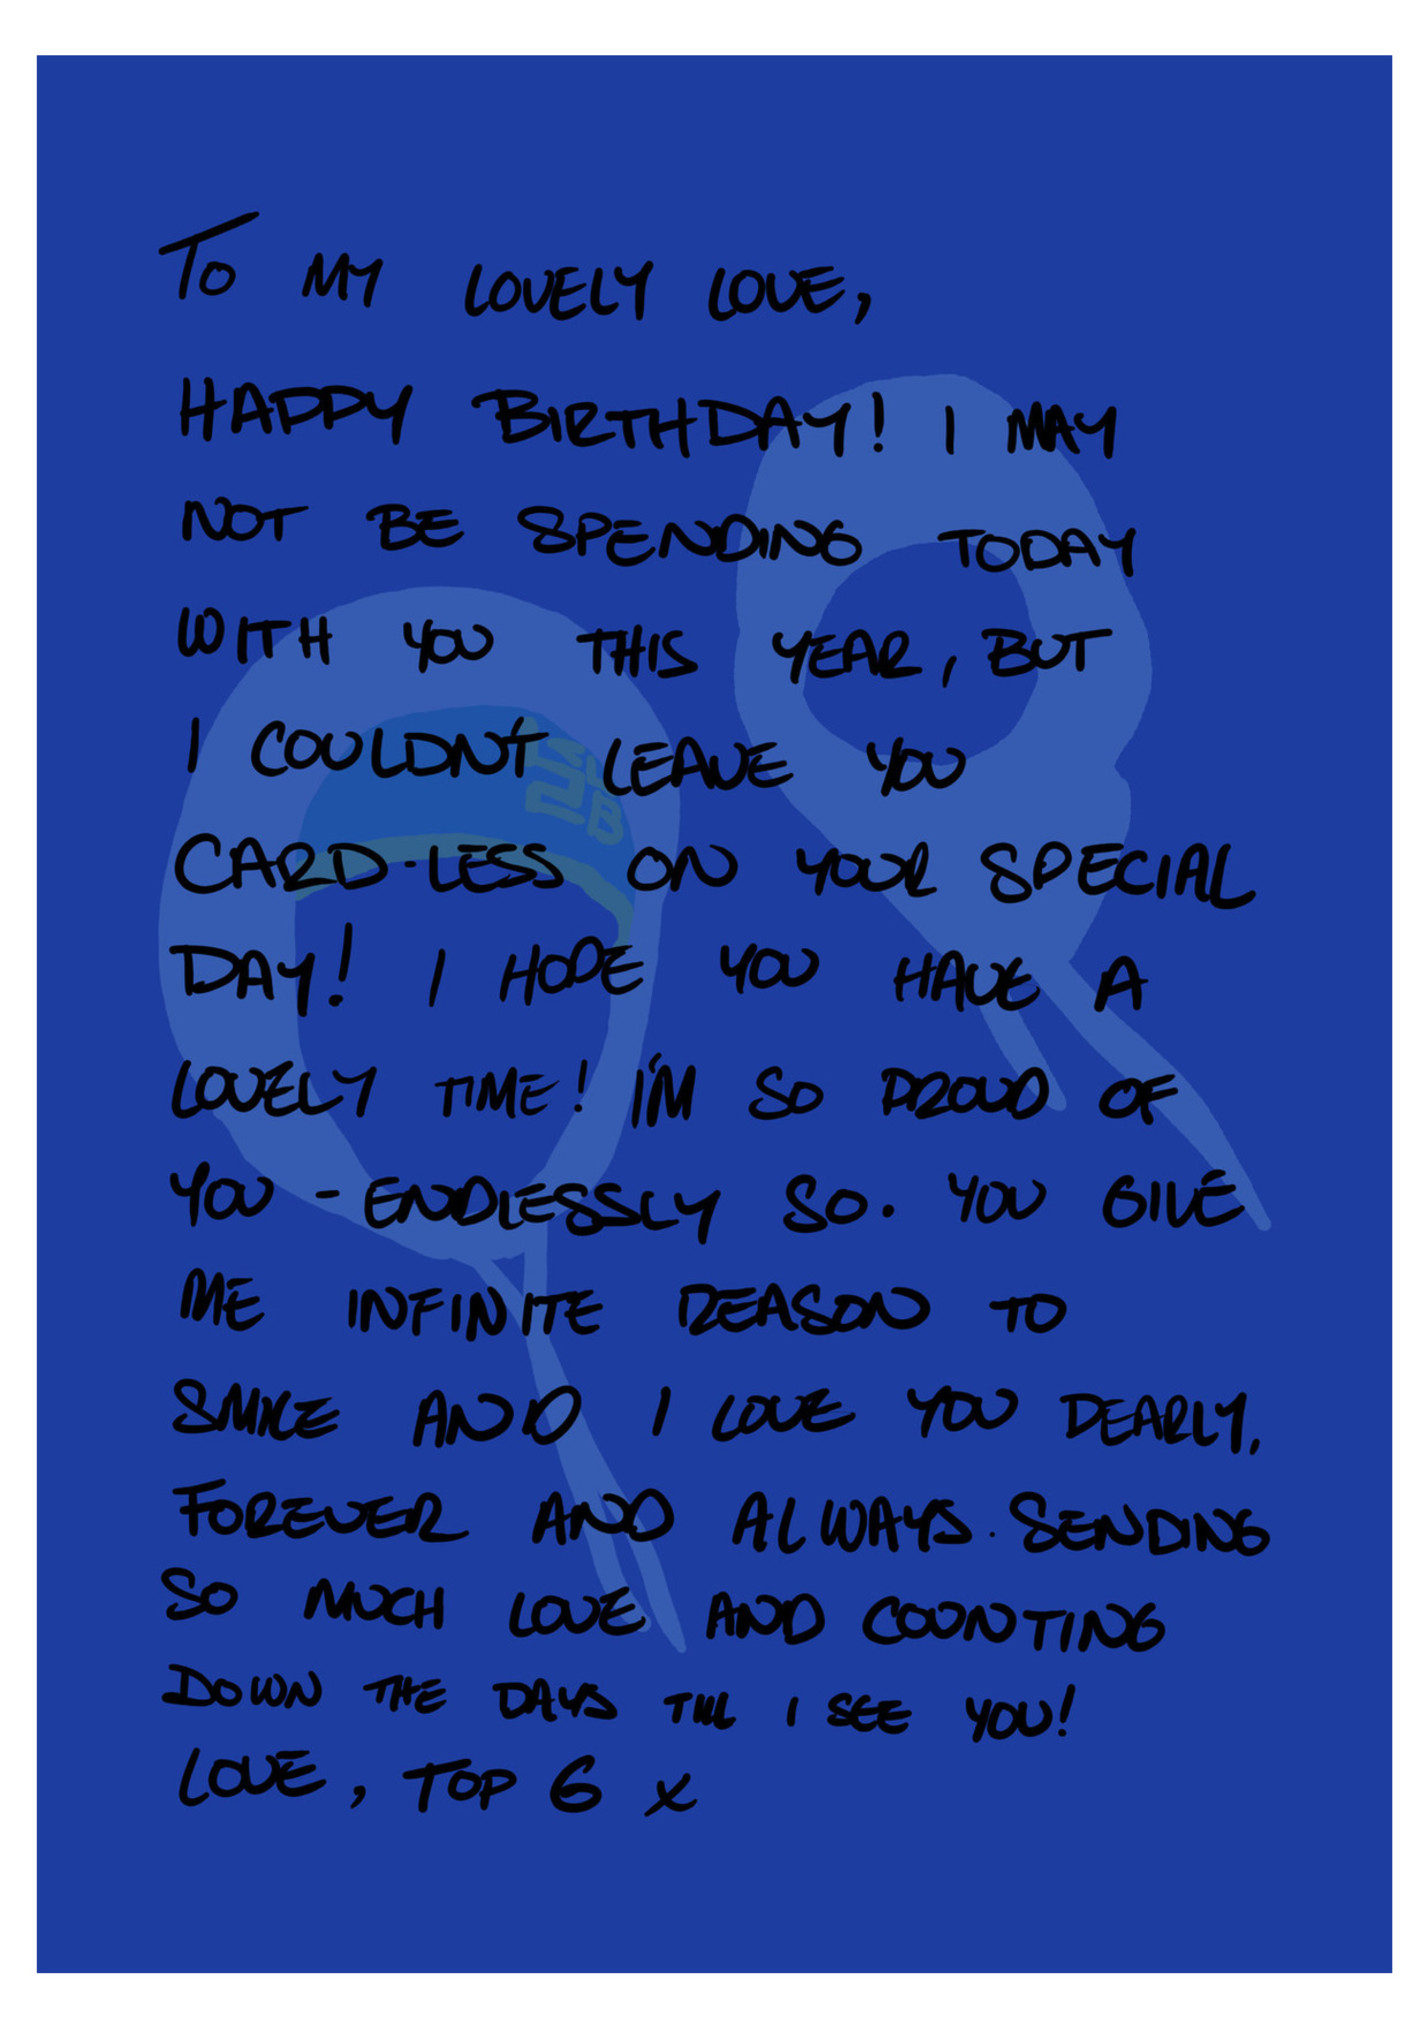 To MY LOVELY LOVE,
HAPPY BIRTHDAY! I MAY
NOT BE SPENDING TODAY
WITH YOU THIS YEAR, BUT
I COULDN'T LEAVE YOU
CARD-LESS ON YOUR SPECIAL
DAY! I HOPE YOU HAVE A
LOVELY TIME! I'M SO PROUD OF
YOU - ENDLESSLY SO. YOU GIVE
ME INFINITE REASON TO
SMILE AND I LOVE YOU DEARLY,
FOREVER AND ALWAYS. SENDING
SO MUCH LOVE AND COUNTING
DOWN THE DAYS TILL I SEE YOU!
LOVE, TOP 6 x